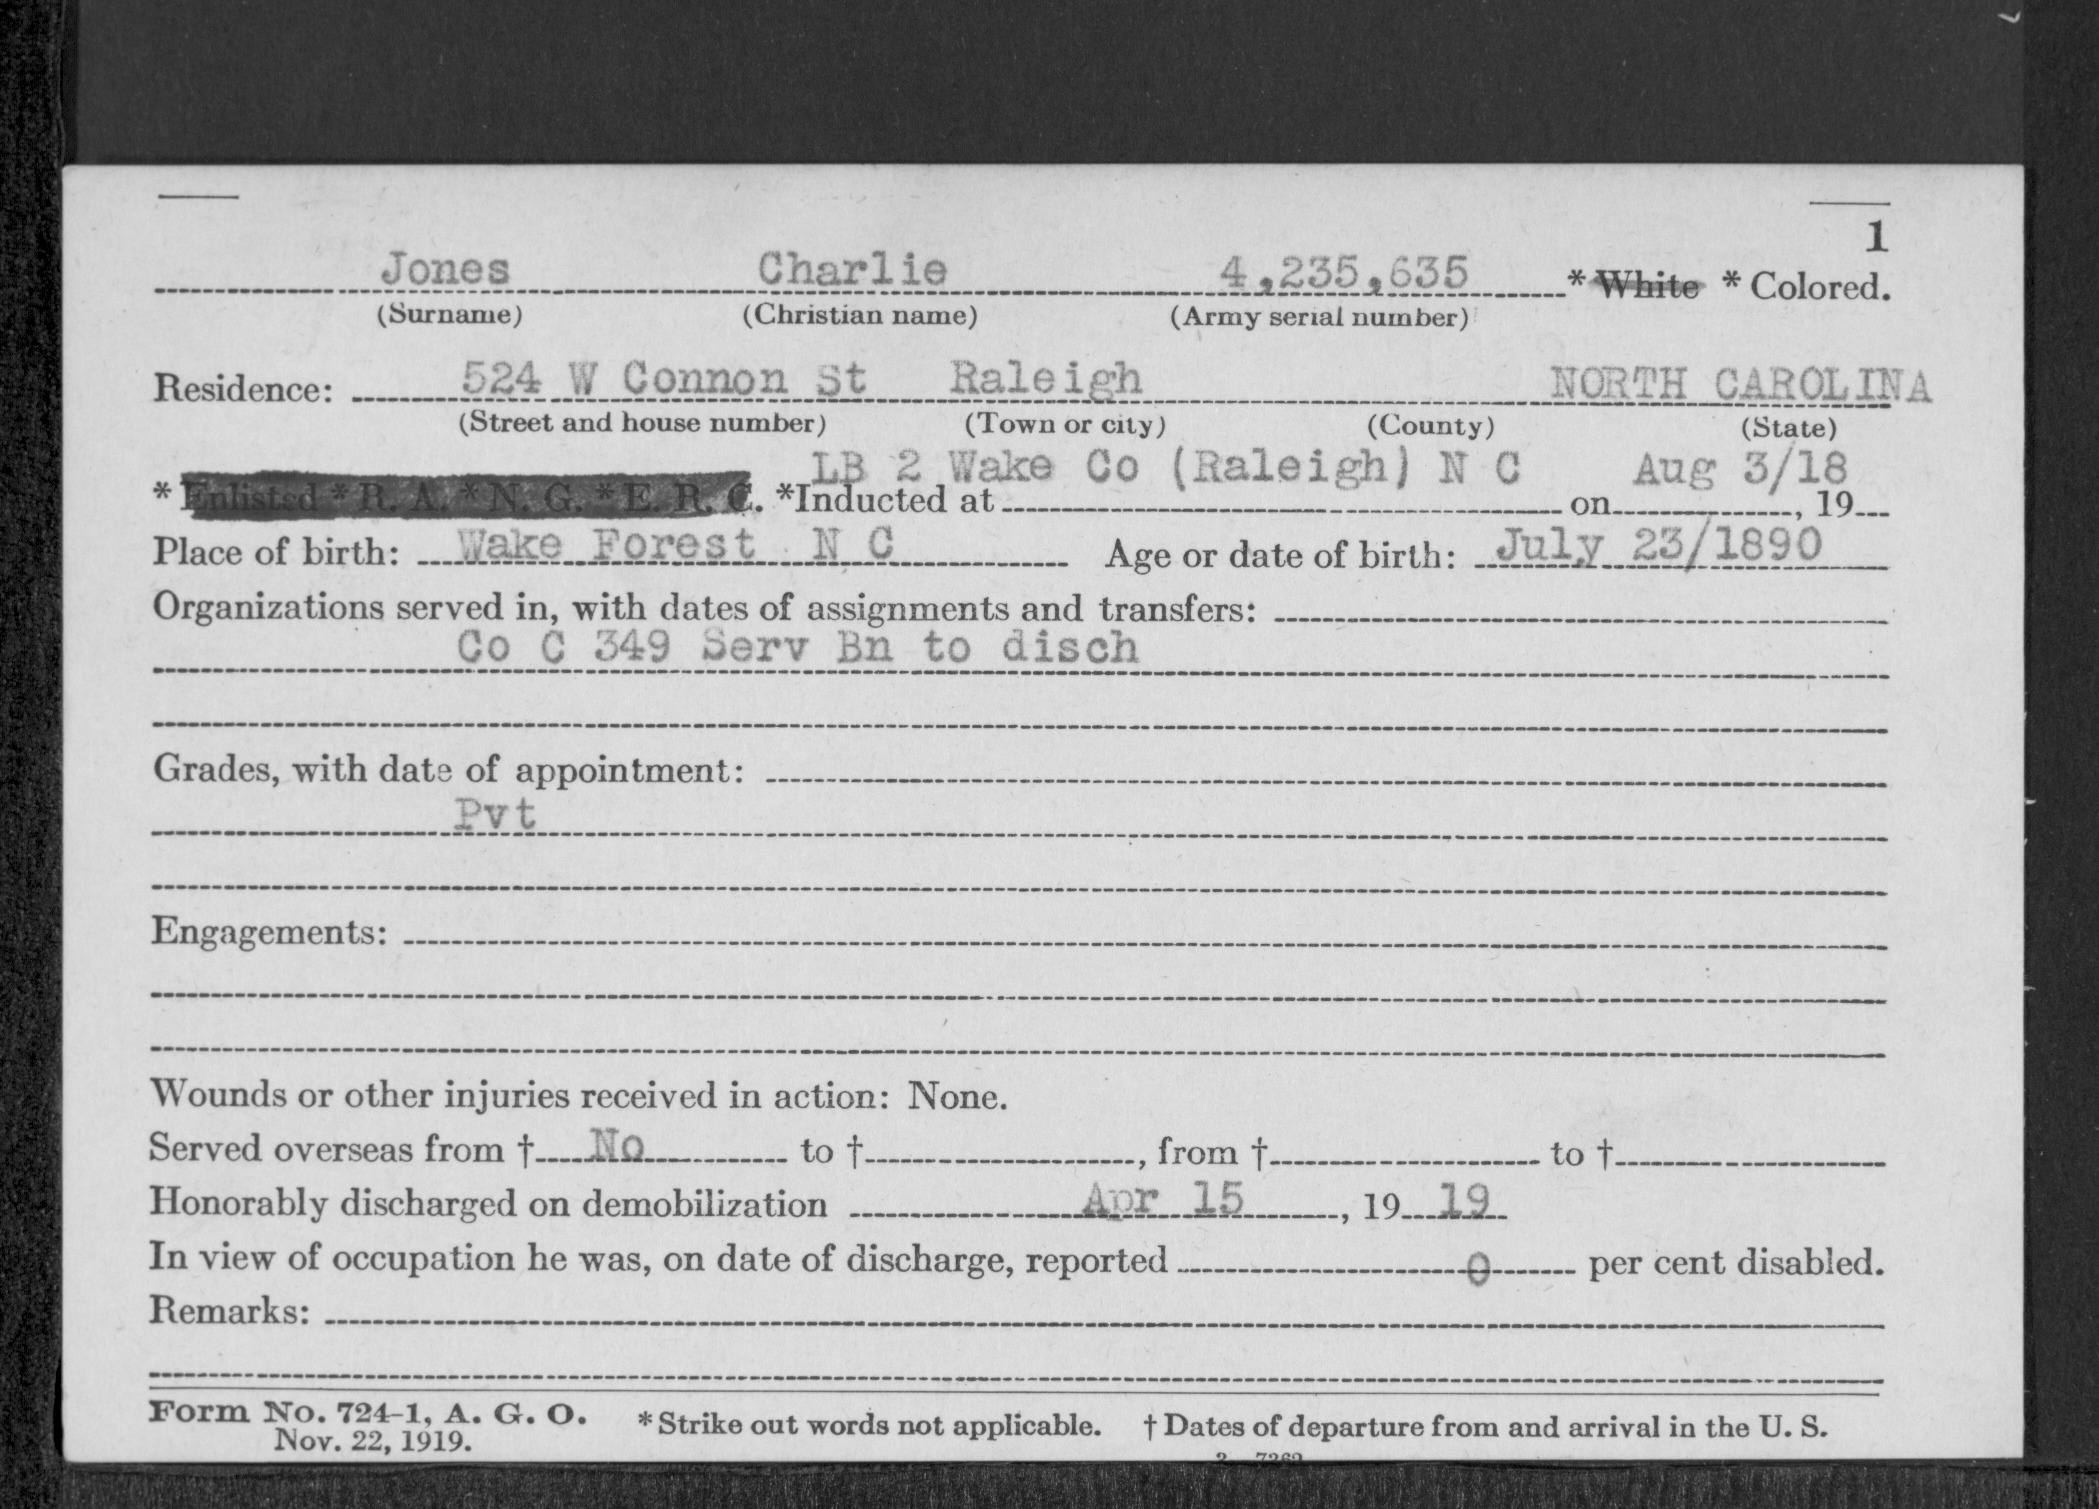 1
Jones Charlie 4,235,635 * White * Colored.
(Surname) (Christian name) (Army serial number)
Residence: 524 W Connon St Raleigh NORTH CAROLINA
(Street and house number) (Town or city) (County) (State)
LB 2 Wake Co (Raleigh) N C Aug 3/18
* Enlisted * R. A. * N. G. * E. R. C. *Inducted at on , 19
Place of birth: Wake Forest N C Age or date of birth: July 23/1890
Organizations served in, with dates of assignments and transfers:
Co C 349 Serv Bn to disch
Grades, with date of appointment:
Pvt
Engagements:
Wounds or other injuries received in action: None.
Served overseas from † No to † , from † to †
Honorably discharged on demobilization Apr 15 , 19 19
In view of occupation he was, on date of discharge, reported 0 per cent disabled.
Remarks:
Form No. 724-1, A. G. O. * Strike out words not applicable. † Dates of departure from and arrival in the U. S.
Nov. 22, 1919.